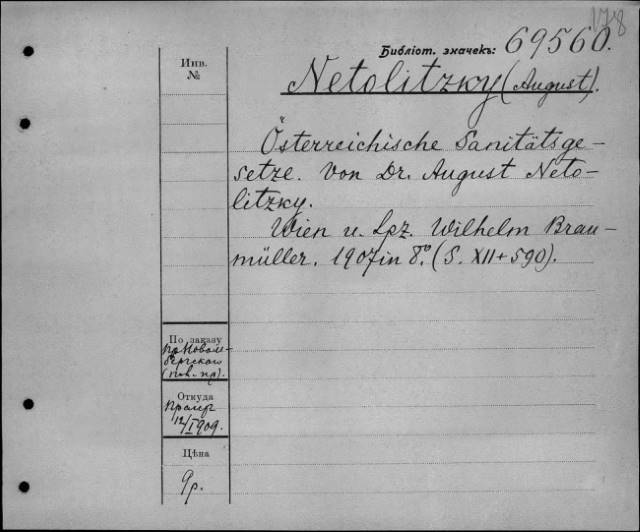 178
Библіот. значекъ: 69560.
Инв.
№
Netolitzky (August).
Österreichische Sanitätsge-
setze. Von Dr. August Neto-
litzky.
Wien u. Lpz. Wilhelm Brau-
müller. 1907 in 8°. (S. XII + 590).
По заказу
Откуда
12/I 1909.
Цѣна
9 р.